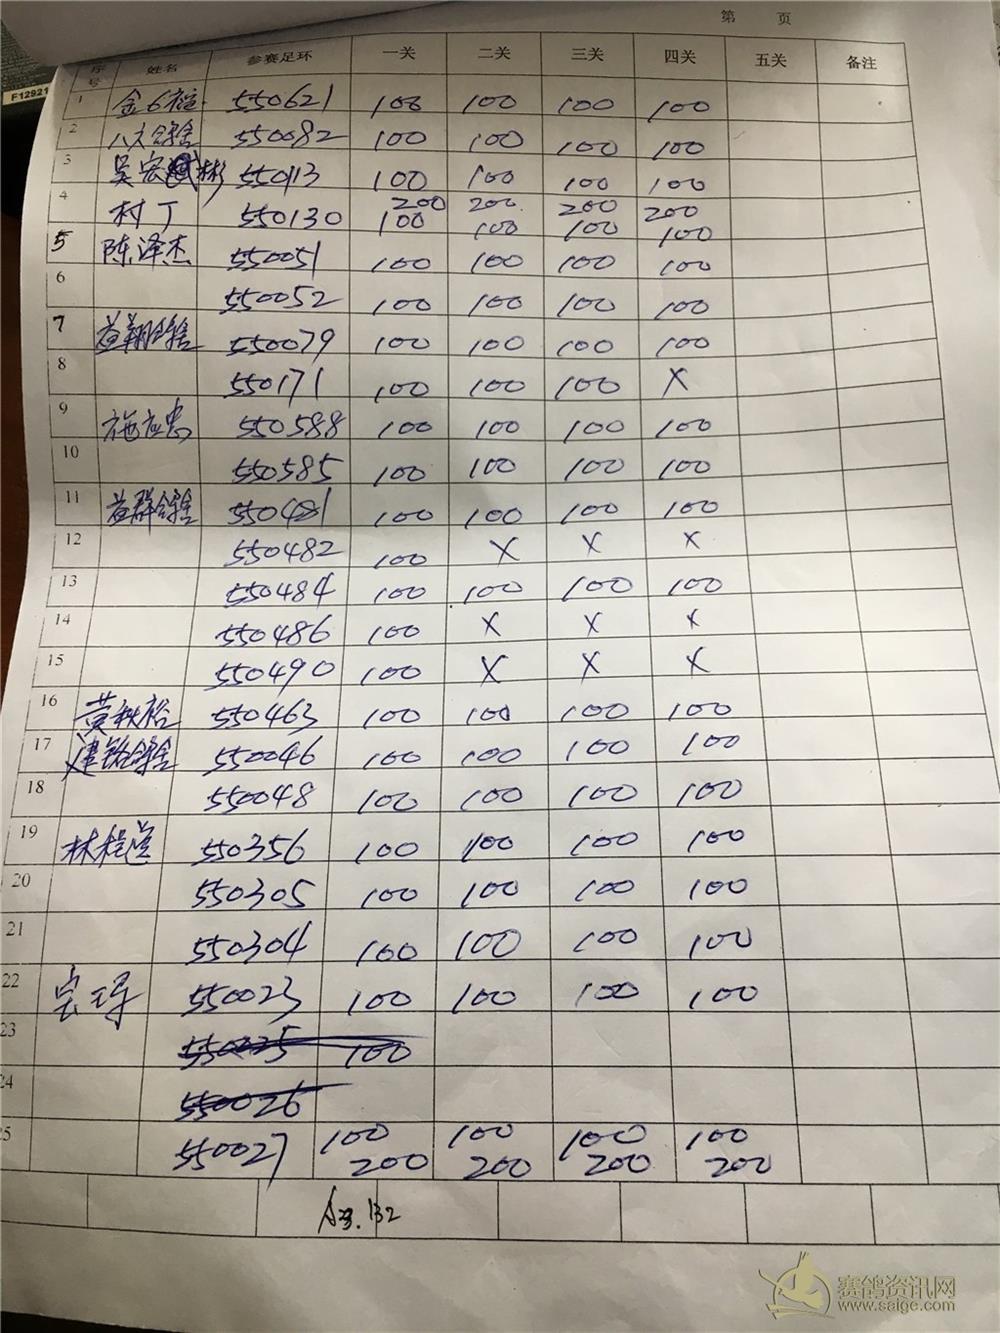 第 页
序号 姓名 参赛足环 一关 二关 三关 四关 五关 备注
F12921
1 550621 100 100 100 100
2 八大鸽舍 550082 100 100 100 100
3 吴宏彬 550113 100 100 100 100
4 村丁 550130 200 100 200 100 200 100 200 100
5 陈泽杰 550051 100 100 100 100
6 550052 100 100 100 100
7 益翔鸽舍 550079 100 100 100 100
8 550171 100 100 100 X
9 施应忠 550588 100 100 100 100
10 550585 100 100 100 100
11 益群鸽舍 550481 100 100 100 100
12 550482 100 X X X
13 550484 100 100 100 100
14 550486 100 X X X
15 550490 100 X X X
16 黄秋裕 550463 100 100 100 100
17 建铭鸽舍 550046 100 100 100 100
18 550048 100 100 100 100
19 550356 100 100 100 100
20 550305 100 100 100 100
21 550304 100 100 100 100
22 550023 100 100 100 100
23 550025 100
24 550026
25 550027 100 200 100 200 100 200 100 200
赛鸽资讯网
www.saige.com